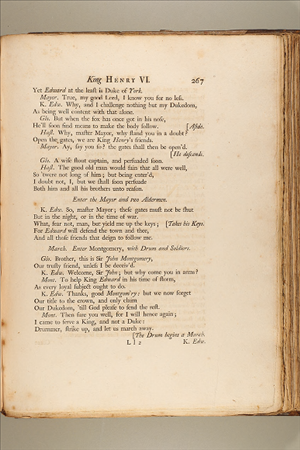 King HENRY VI. 267
Yet Edward at the least is Duke of York.
Mayor. True, my good Lord, I know you for no less.
K. Edw. Why, and I challenge nothing but my Dukedom,
As being well content with that alone.
Glo. But when the fox has once got in his nose,
He'll soon find means to make the body follow. [Aside.
Hast. Why, master Mayor, why stand you in a doubt?
Open the gates, we are King Henry's friends.
Mayor. Ay, say you so? the gates shall then be open'd.
[He descends.
Glo. A wise stout captain, and persuaded soon.
Hast. The good old man would fain that all were well,
So 'twere not long of him; but being enter'd,
I doubt not, I, but we shall soon persuade
Both him and all his brothers unto reason.
Enter the Mayor and two Aldermen.
K. Edw. So, master Mayor; these gates must not be shut
But in the night, or in the time of war.
What, fear not, man, but yield me up the keys; [Takes his Keys.
For Edward will defend the town and thee,
And all those friends that deign to follow me.
March. Enter Montgomery, with Drum and Soldiers.
Glo. Brother, this is Sir John Montgomery,
Our trusty friend, unless I be deceiv'd.
K. Edw. Welcome, Sir John; but why come you in arms?
Mont. To help King Edward in his time of storm,
As every loyal subject ought to do.
K. Edw. Thanks, good Montgom'ry: but we now forget
Our title to the crown, and only claim
Our Dukedom, 'till God please to send the rest.
Mont. Then fare you well, for I will hence again;
I came to serve a King, and not a Duke:
Drummer, strike up, and let us march away.
[The Drum begins a March.
L l 2 K. Edw.